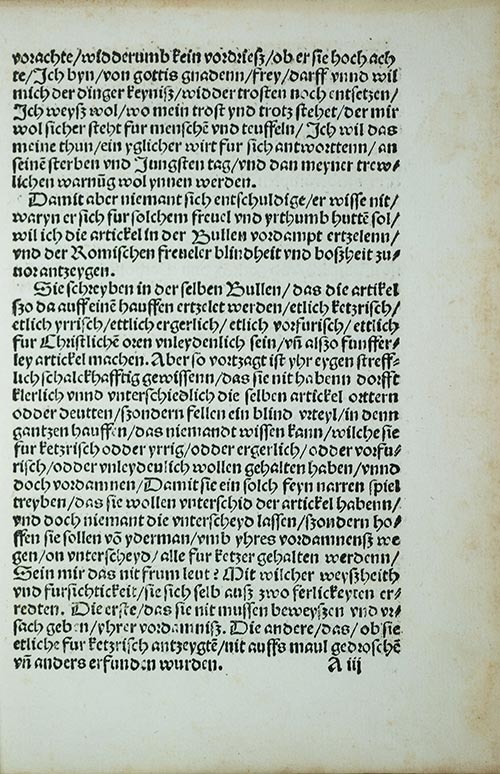 vorachte/widderumb kein vordrieſz/ob er sie hoch ach
te/Ich byn/von gottis gnadenn/frey/darff vnnd wil
mich der dinger keyniſz/widder trosten noch entsetzen/
Ich weyſz wol/wo mein trost vnd trotz stehet/der mir
wol sicher steht fur menschē vnd teuffeln/ Ich wil das
meine thun/ein yglicher wirt fur sich antworttenn/ an
seinē sterben vnd Jungsten tag/vnd dan meyner trew⸗
lichen warnūg wol ynnen werden.
Damit aber niemant sich entschuldige/er wisse nit/
waryn er sich fur solchem freuel vnd yrthumb huttē sol/
wil ich die artickel in der Bullen vordampt ertzelenn/
vnd der Romischen freueler blindheit vnd boſzheit zu⸗
uor antzeygen.
Sie schreyben in der selben Bullen/ das die artikel
ſzo da auff einē hauffen ertzelet werden/etlich ketzrisch/
etlich yrrisch/ettlich ergerlich/ etlich vorfurisch/ ettlich
fur Christlichē oren vnleydenlich sein/vn̄ alſzo funffer⸗
ley artickel machen. Aber so vortzagt ist yhr eygen streff⸗
lich schalckhafftig gewissenn/das sie nit habenn dorfft
klerlich vnnd vnterschiedlich die selben artickel orttern
odder deutten/ſzondern fellen ein blind vrteyl/in denn
gantzen hauffen/das niemandt wissen kann/wilche sie
fur ketzrisch odder yrrig/odder ergerlich/ odder vorfu⸗
risch/odder vnleydenlich wollen gehalten haben/vnnd
doch vordamnen/Damit sie ein solch feyn narren spiel
treyben/das sie wollen vnterschid der artickel habenn/
vnd doch niemant die vnterscheyd lassen/ſzondern ho⸗
ffen sie sollen vō yderman/vmb yhres vordamnenſz we
gen/on vnterscheyd/ alle fur ketzer gehalten werdenn/
Sein mir das nit frum leut? Mit wilcher weyſzheith
vnd fursichtickeit/sie sich selb auſz zwo ferlickeyten er⸗
redten. Die erste/das sie nit mussen beweyſzen vnd vr⸗
sach geben/yhrer vordamniſz. Die andere/das/ ob sie
etliche fur ketzrisch antzeygtē/nit auffs maul gedroschē
vn̄ anders erfunden wurden.
A iii